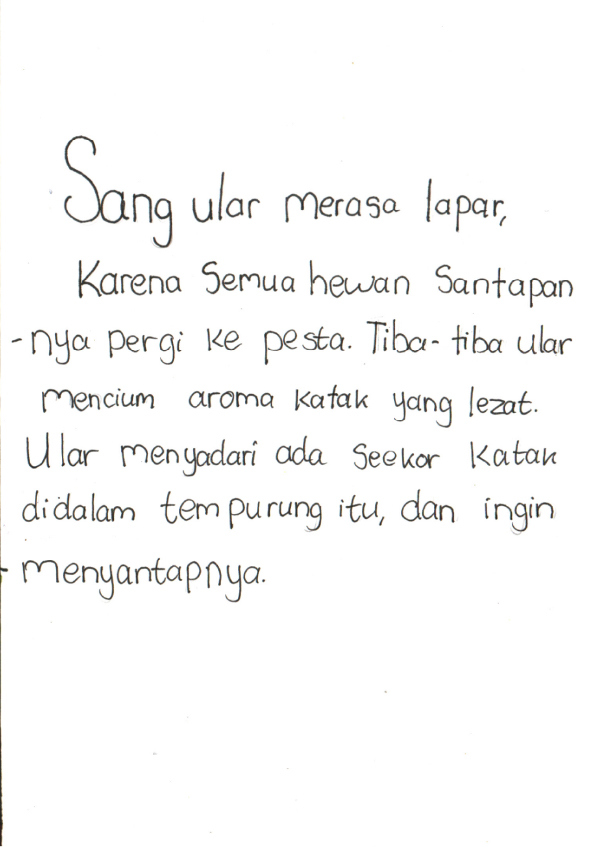 Sang ular merasa lapar,
Karena Semua hewan Santapan
-nya pergi ke pesta. Tiba-tiba ular
mencium aroma katak yang lezat.
Ular menyadari ada Seekor Katak
didalam tempurung itu, dan ingin
-menyantapnya.